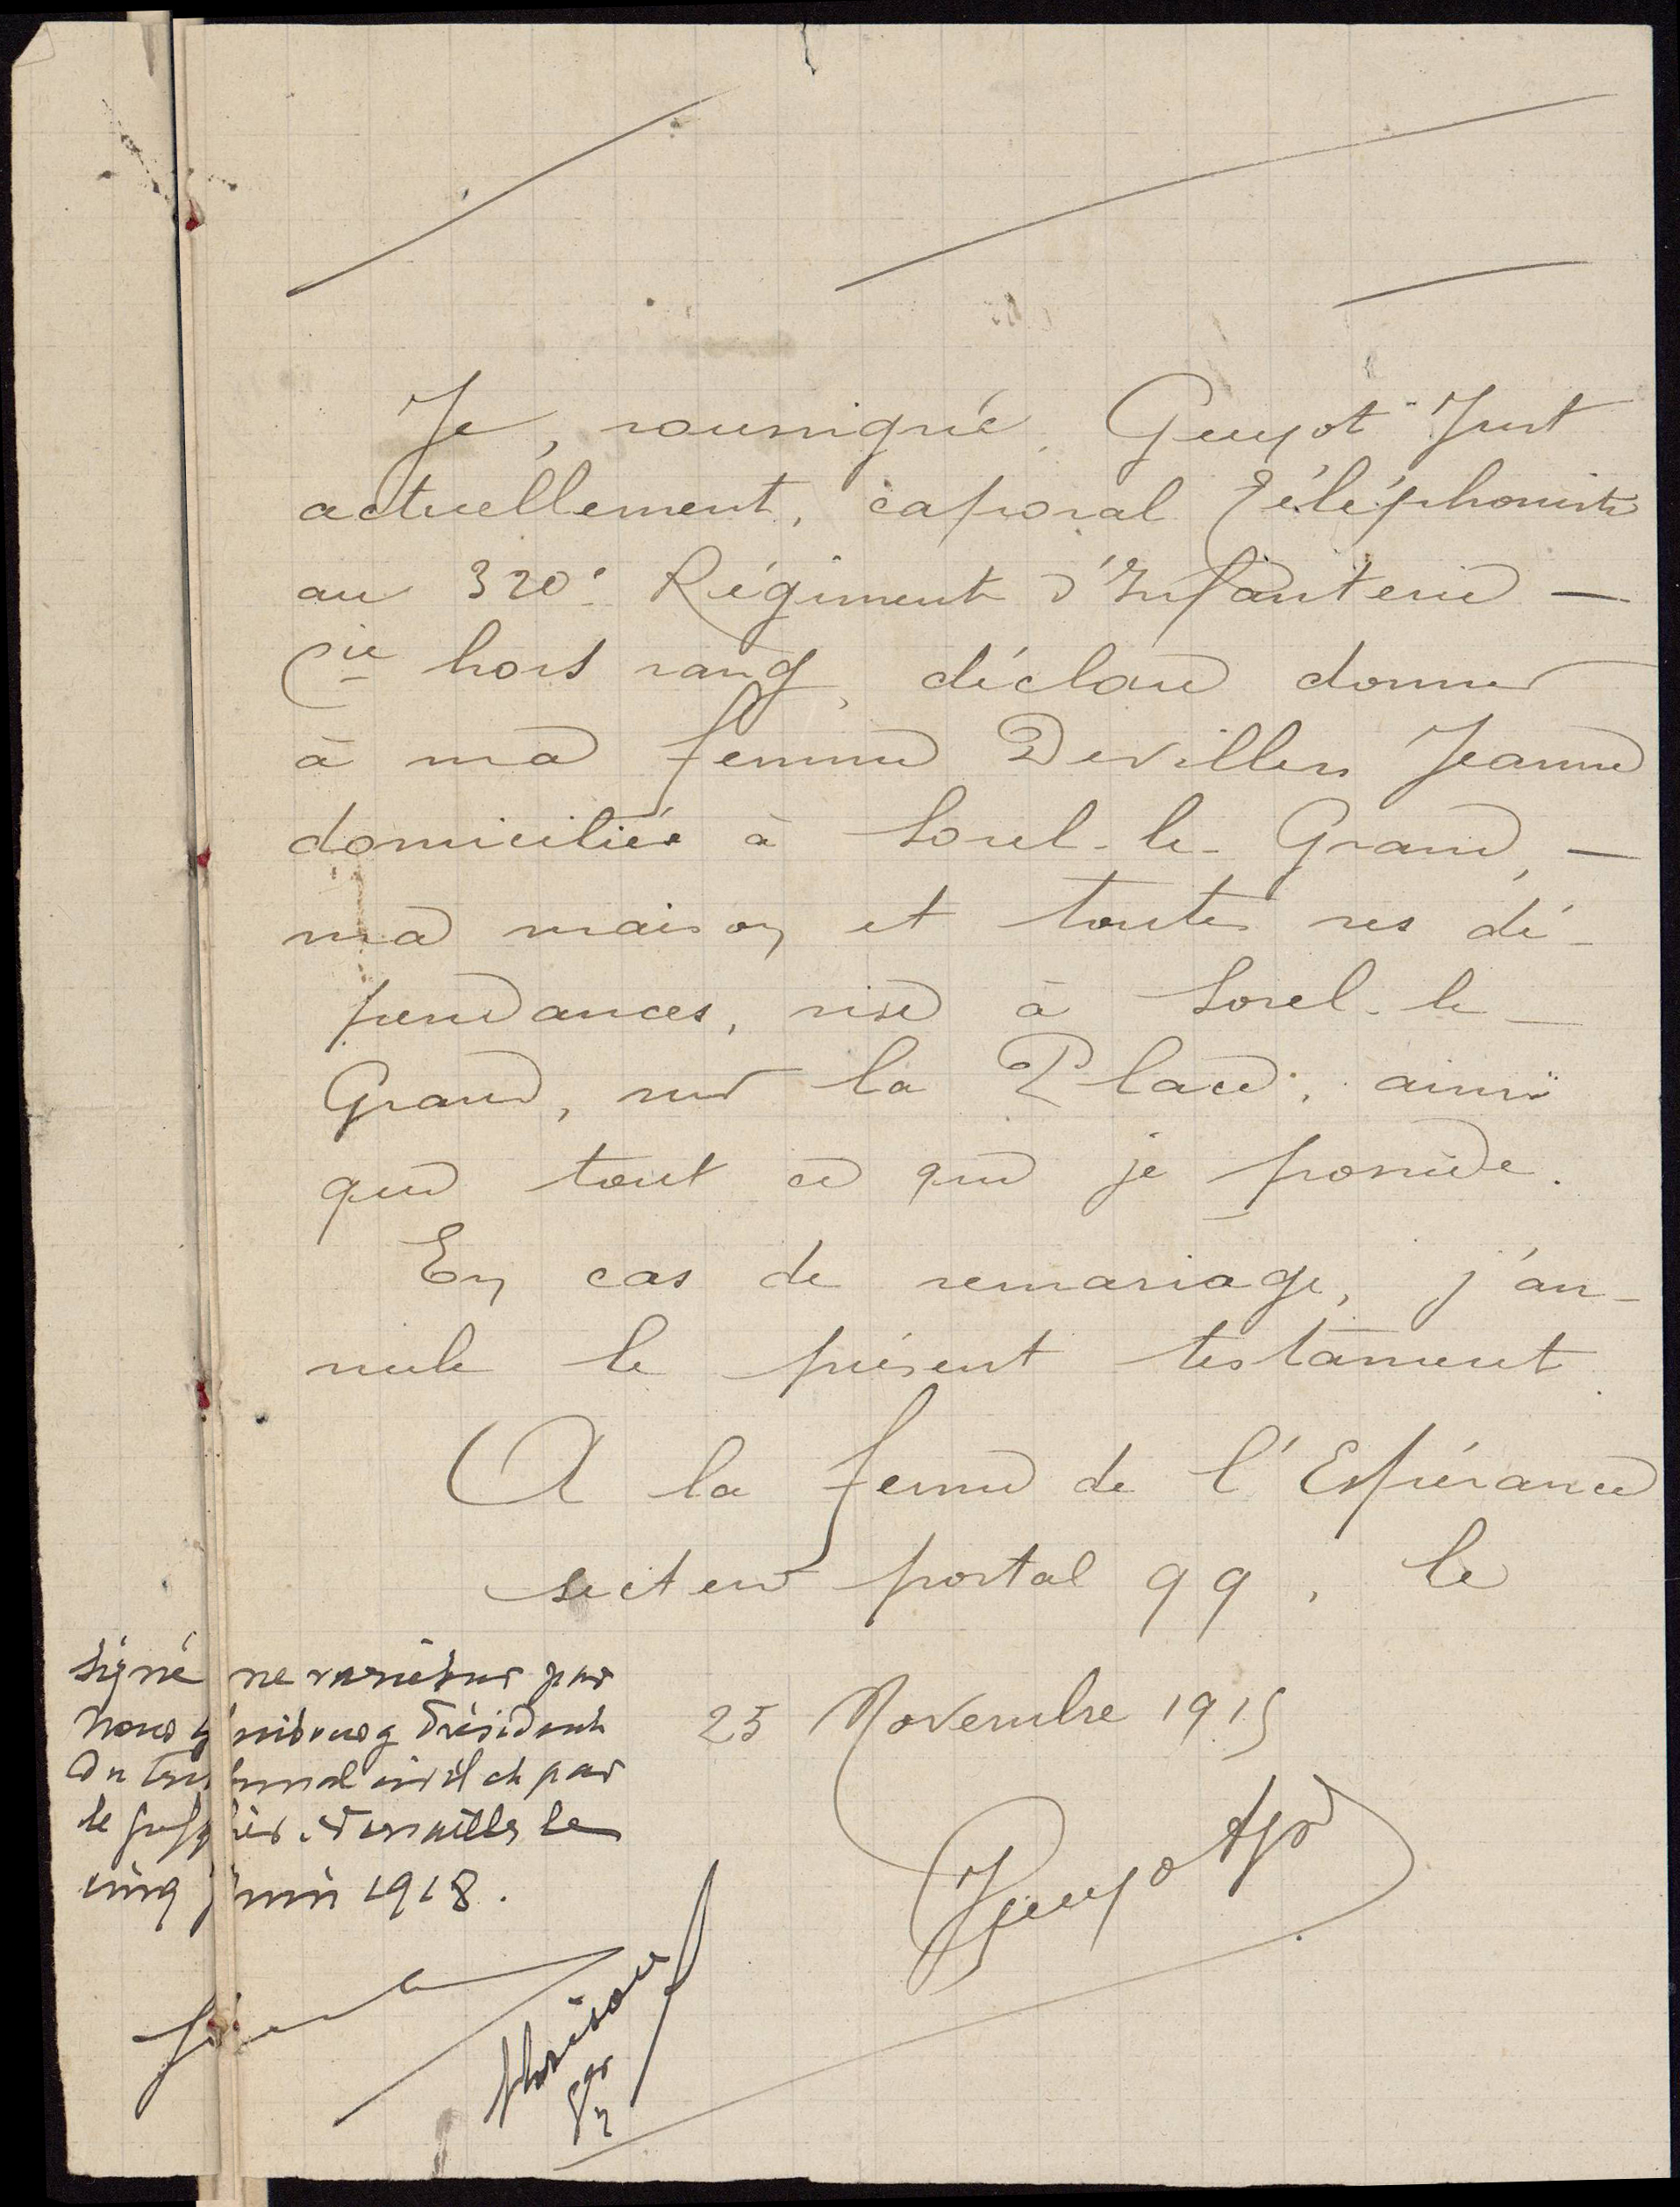 Je, soussigné, Guyot Just
actuellement, caporal téléphoniste
au 320e Régiment d'Infanterie —
Cie hors rang, déclare donner
à ma femme Devillers Jeanne
domiciliée à Sorel-le-Grand, —
ma maison et toutes ses dé-
pendances, sise à Sorel-le-
Grand, sur la Place; ainsi
que tout ce que je possède.
En cas de remariage, j'an-
nule le présent testament.
A la ferme de l'Espérance
secteur postal 99, le
25 Novembre 1915
Guyot Jst
Signé ne varietur par
Nous Président
du tribunal civil et par
le greffier. Versailles le
cinq juin 1918.